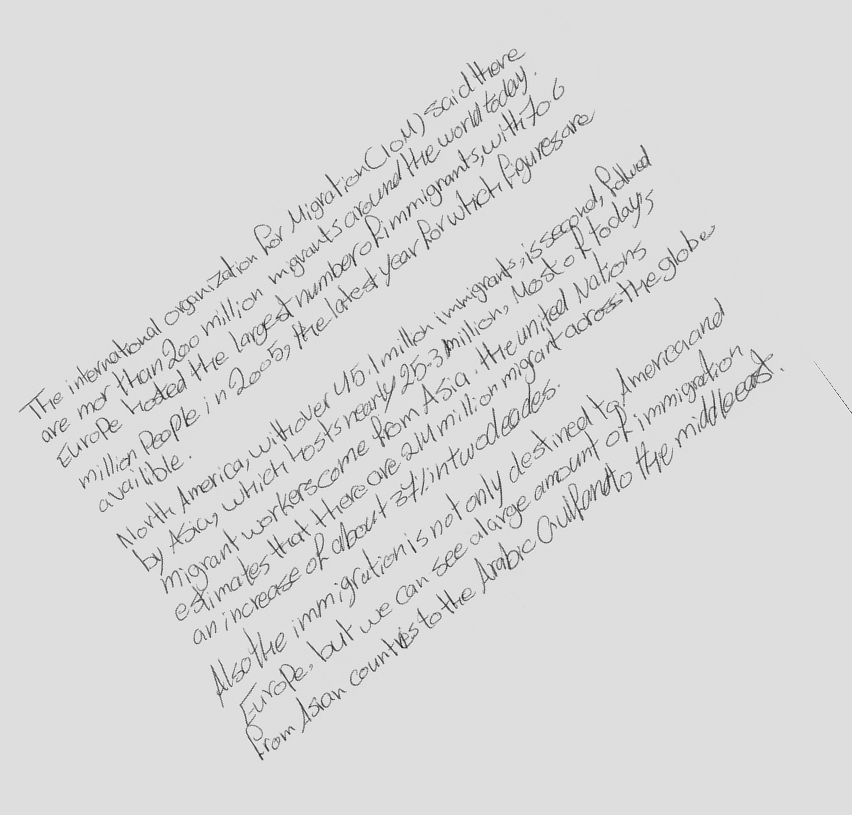 The international organization for Migration (IOM) said there
are mor than 200 million migrants around the world today.
Europe hosted the largest number of immigrants, with 70 6
million People in 2005, the latest year for which figures are
availible.
North America, with over 45.1 million immigrants, is second, follwed
by Asia, which hosts nearly 25.3 million, Most of today's
migrant workers come from Asia. the united Nations
estimates that there are 214 million migrant across the globe
an increase of about 37% in two decades.
Also the immigration is not only destined to America and
Europe, but we can see a large amount of immigration
from Asian countries to the Arabic Gulf and to the middle east.